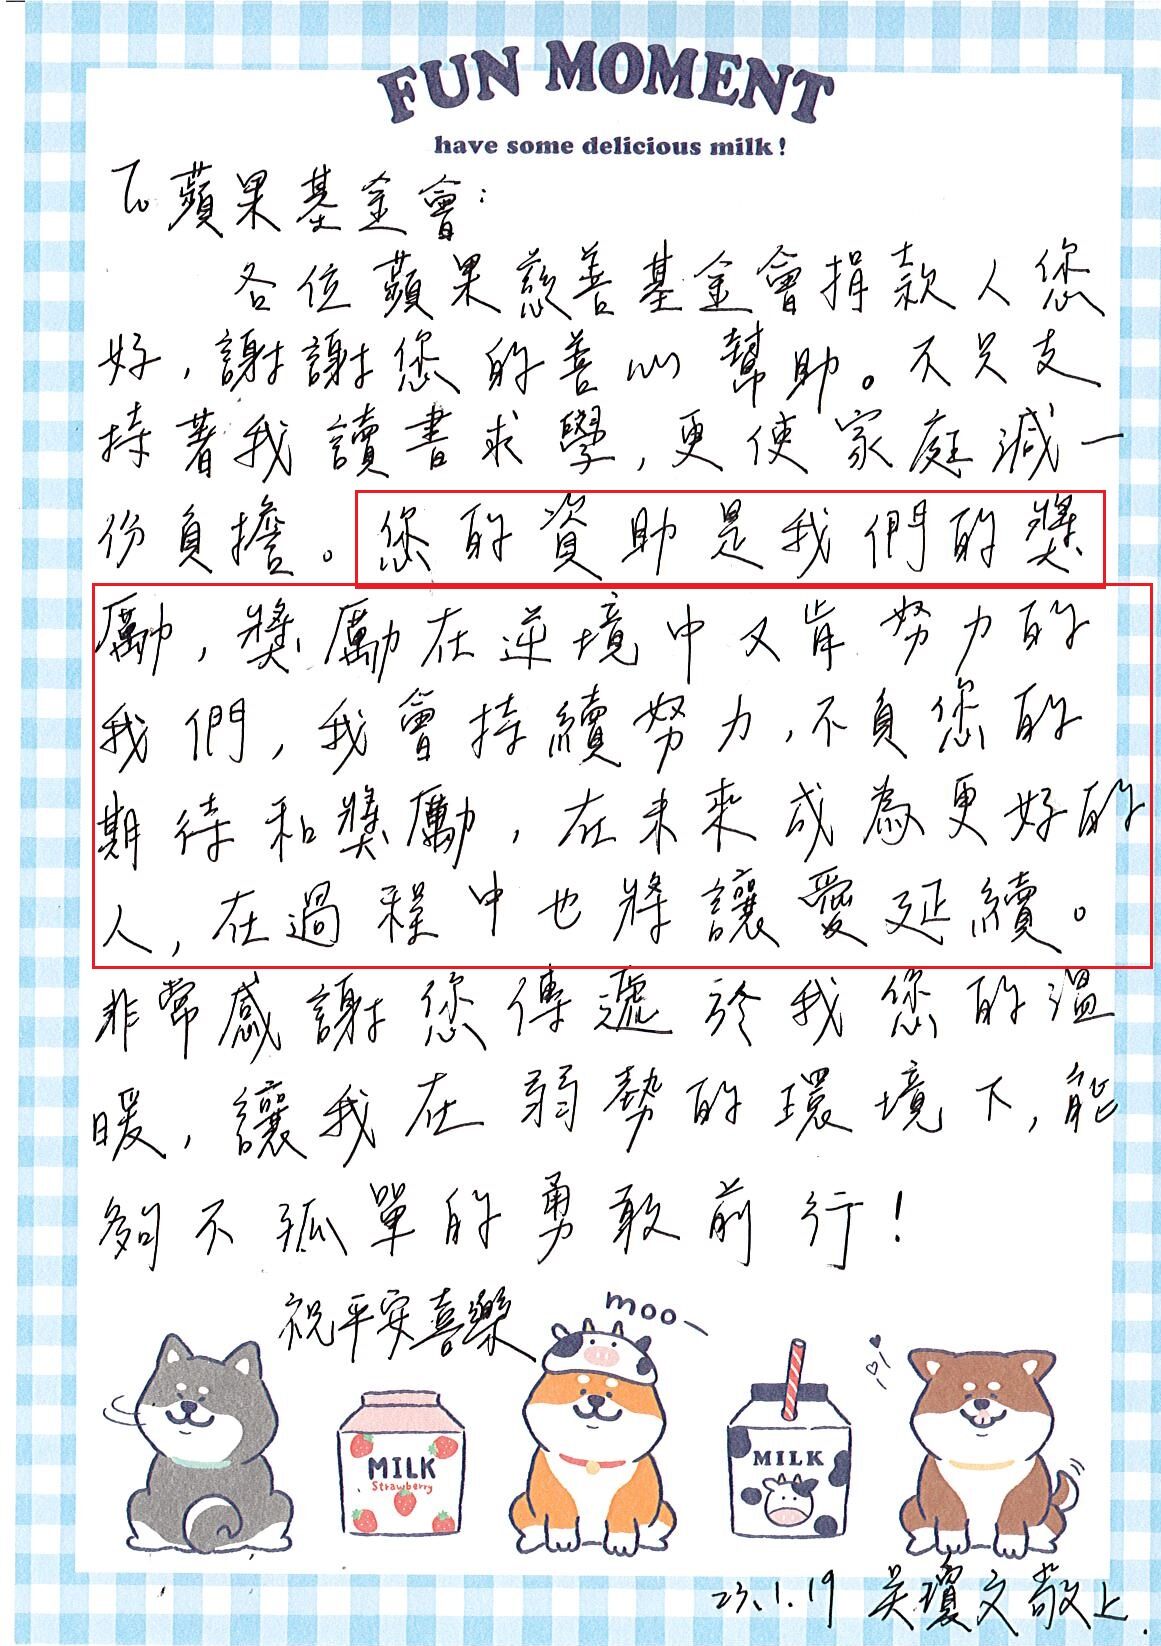 FUN MOMENT
have some delicious milk!
To 蘋果基金會:
各位蘋果慈善基金會捐款人您
好,謝謝您的善心幫助。不只支
持著我讀書求學,更使家庭減一
份負擔。您的資助是我們的獎
勵,獎勵在逆境中又肯努力的
我們,我會持續努力,不負您的
期待和獎勵,在未來成為更好的
人,在過程中也將讓愛延續。
非常感謝您傳遞於我您的溫
暖,讓我在弱勢的環境下,能
夠不孤單的勇敢前行!
祝平安喜樂
moo
MILK
Strawberry
MILK
23.1.19 吳瓊文敬上.